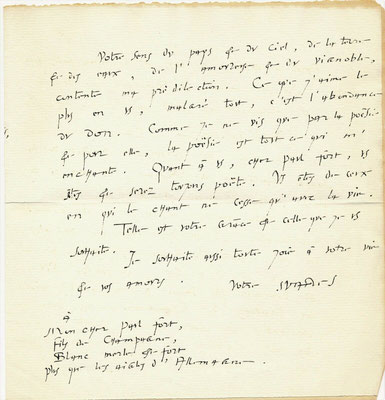 Votre sens du pays & du ciel, de la terre
& des eaux, de l'amoureuse & du vignoble,
contente ma prédilection. Ce que j'aime le
plus en vs, malgré tout, c'est l'abondance
du don. Comme je ne vis que par la poésie
& pour elle, la poésie est tout ce qui m'
enchante. Quant à vs, cher paul fort, vs
êtes & serez toujours poète. Vs êtes de ceux
en qui le chant ne cesse qu'avec la vie.
Telle est votre grâce & celle que je vs
souhaite. Je souhaite aussi toute joie à votre vie
& vos amours. Votre SUARÈS
à
Mon cher paul fort,
fils de Champagne,
Blanc merle & fort
plus que les aigles d'Allemagne.